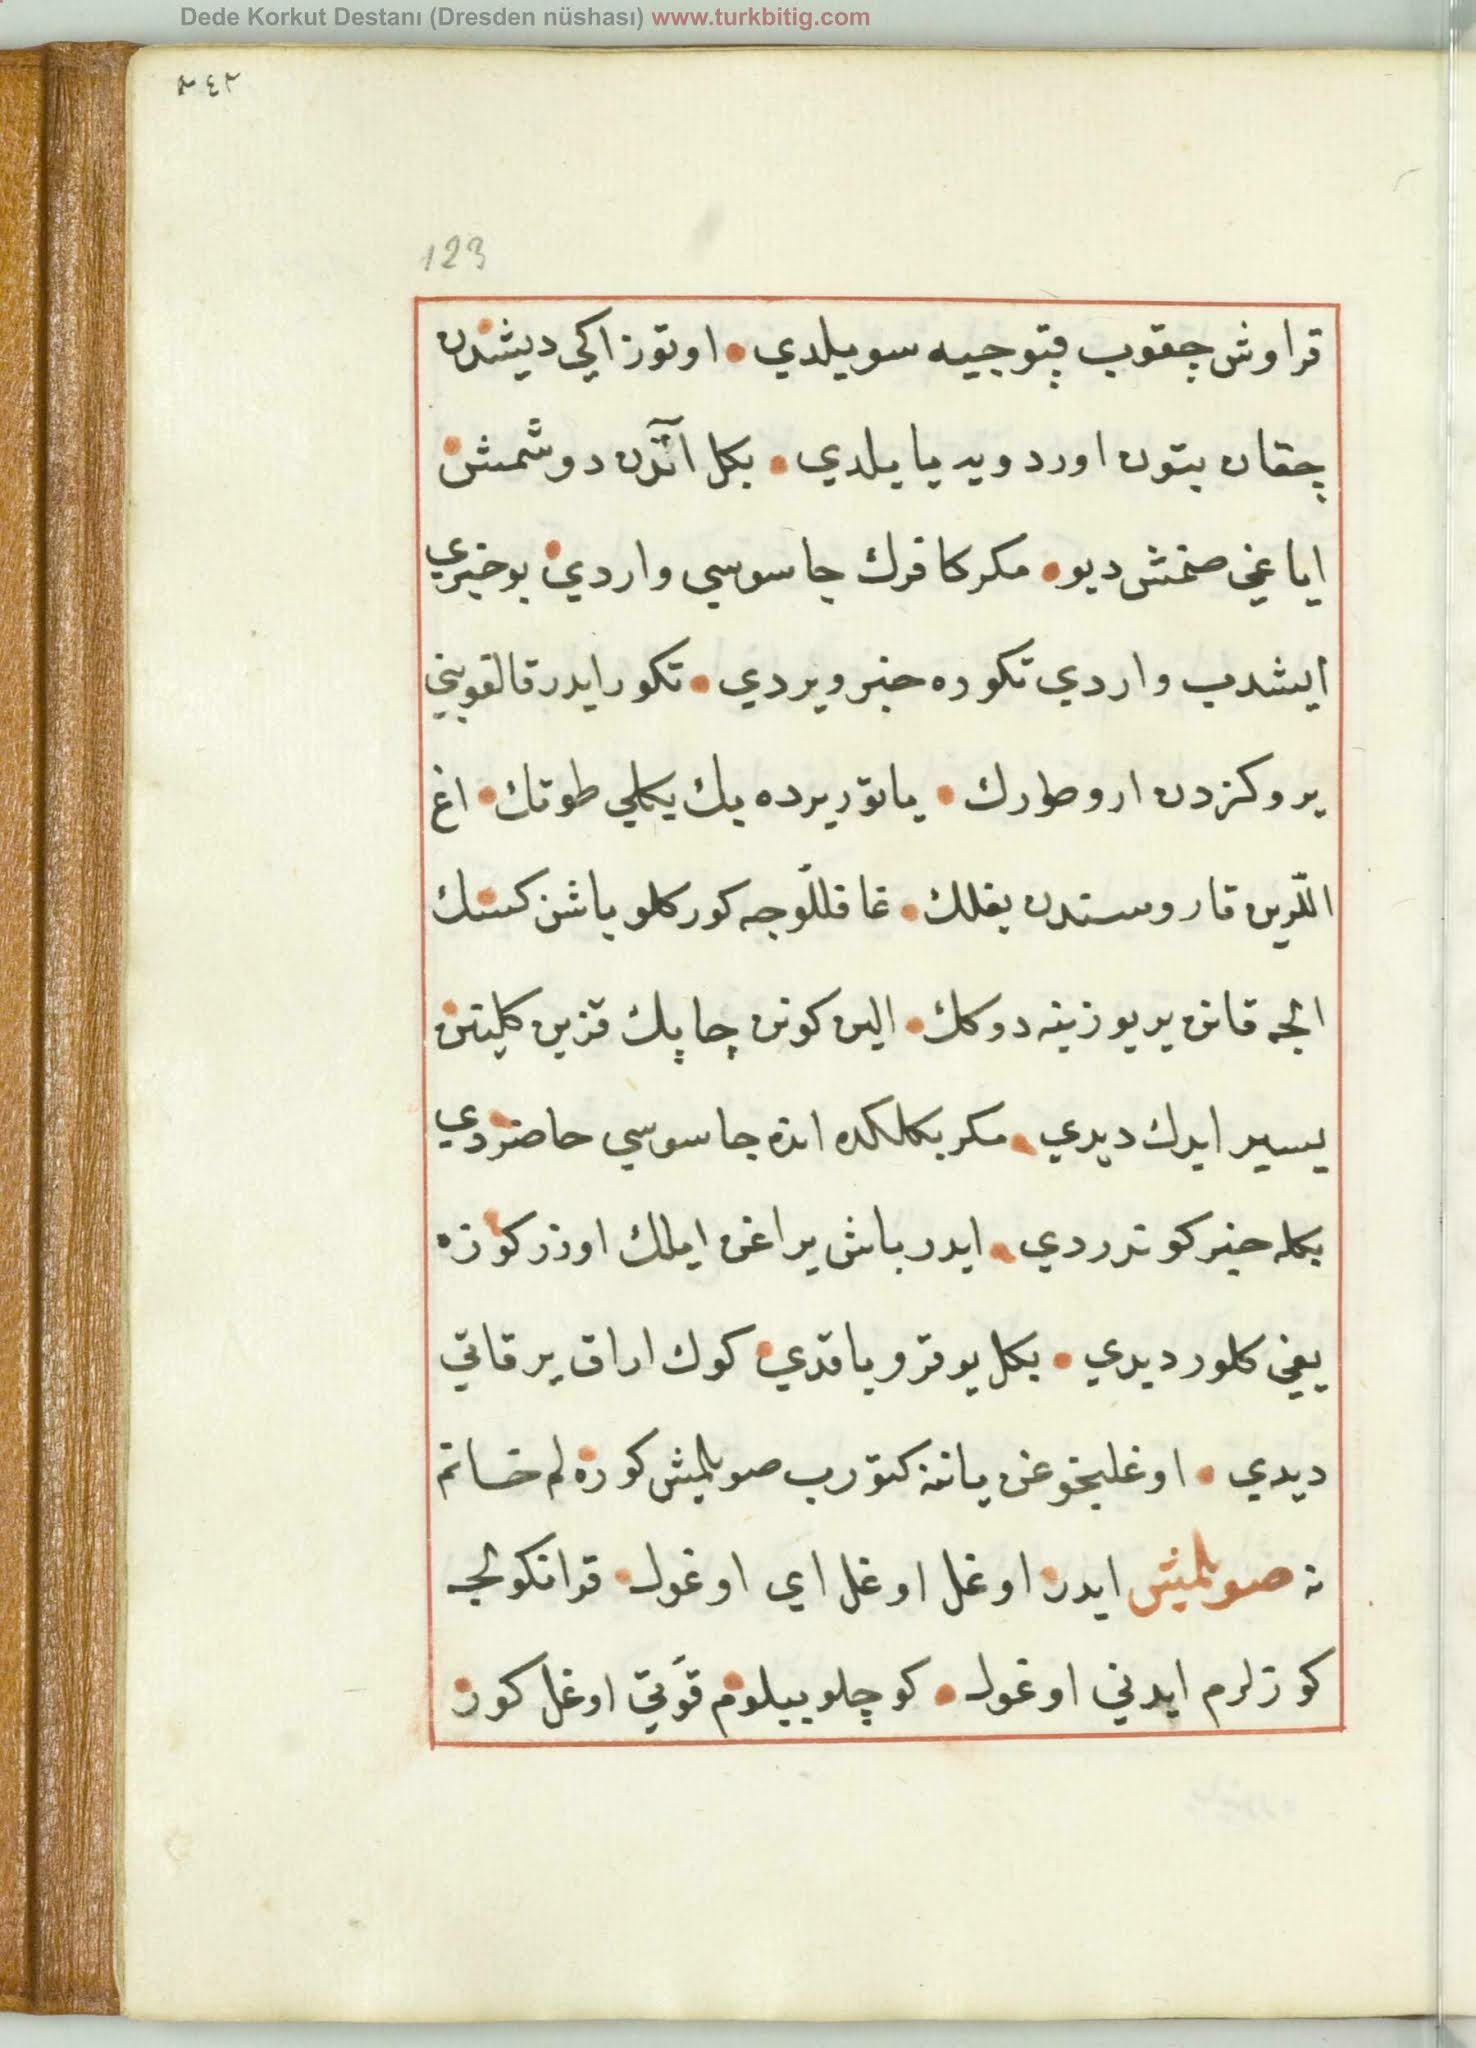 Dede Korkut Destanı (Dresden nüshası) www.turkbitig.com
٢٤٢
123
قراوش چقوب قپوجیه سویلدي • اوتوز اکی دیشدن
چقان بتون اوردویه یایلدي • بكل آتدن دوشمش
ایاغي صنمش دیو • مكر كافرك جاسوسي واردي بو خبري
ایشدب واردي تكوره خبر ویردي • تكور ایدر قالقوبني
یروكزدن اورو طورك • یاتور یرده بك یكلي طوتك • اغ
اللرین قاروسندن بغلك • غافللوجه كوركلو باشن كسك
الجه قانن یر یوزینه دوكك • الین كونن چاپك قزین كلینن
یسیر ایدك دیدي • مكر بكلكده انده جاسوسي حاضردي
بكله خبر كوندردي • ایدر باش یراغن ایلك اوزركوزه
یغي كلور دیدي • بكل یوقرو باقدي كوك اراق یر قاتي
دیدي • اوغلنجوغن یاننه كتورب صویلمیش كوره لم خانم
نه صویلمیش ایدر اوغل اوغل اي اوغول • قرانكولجه
كوزلرم ایدني اوغول • كوچلو بیلوم قوتي اوغل كور